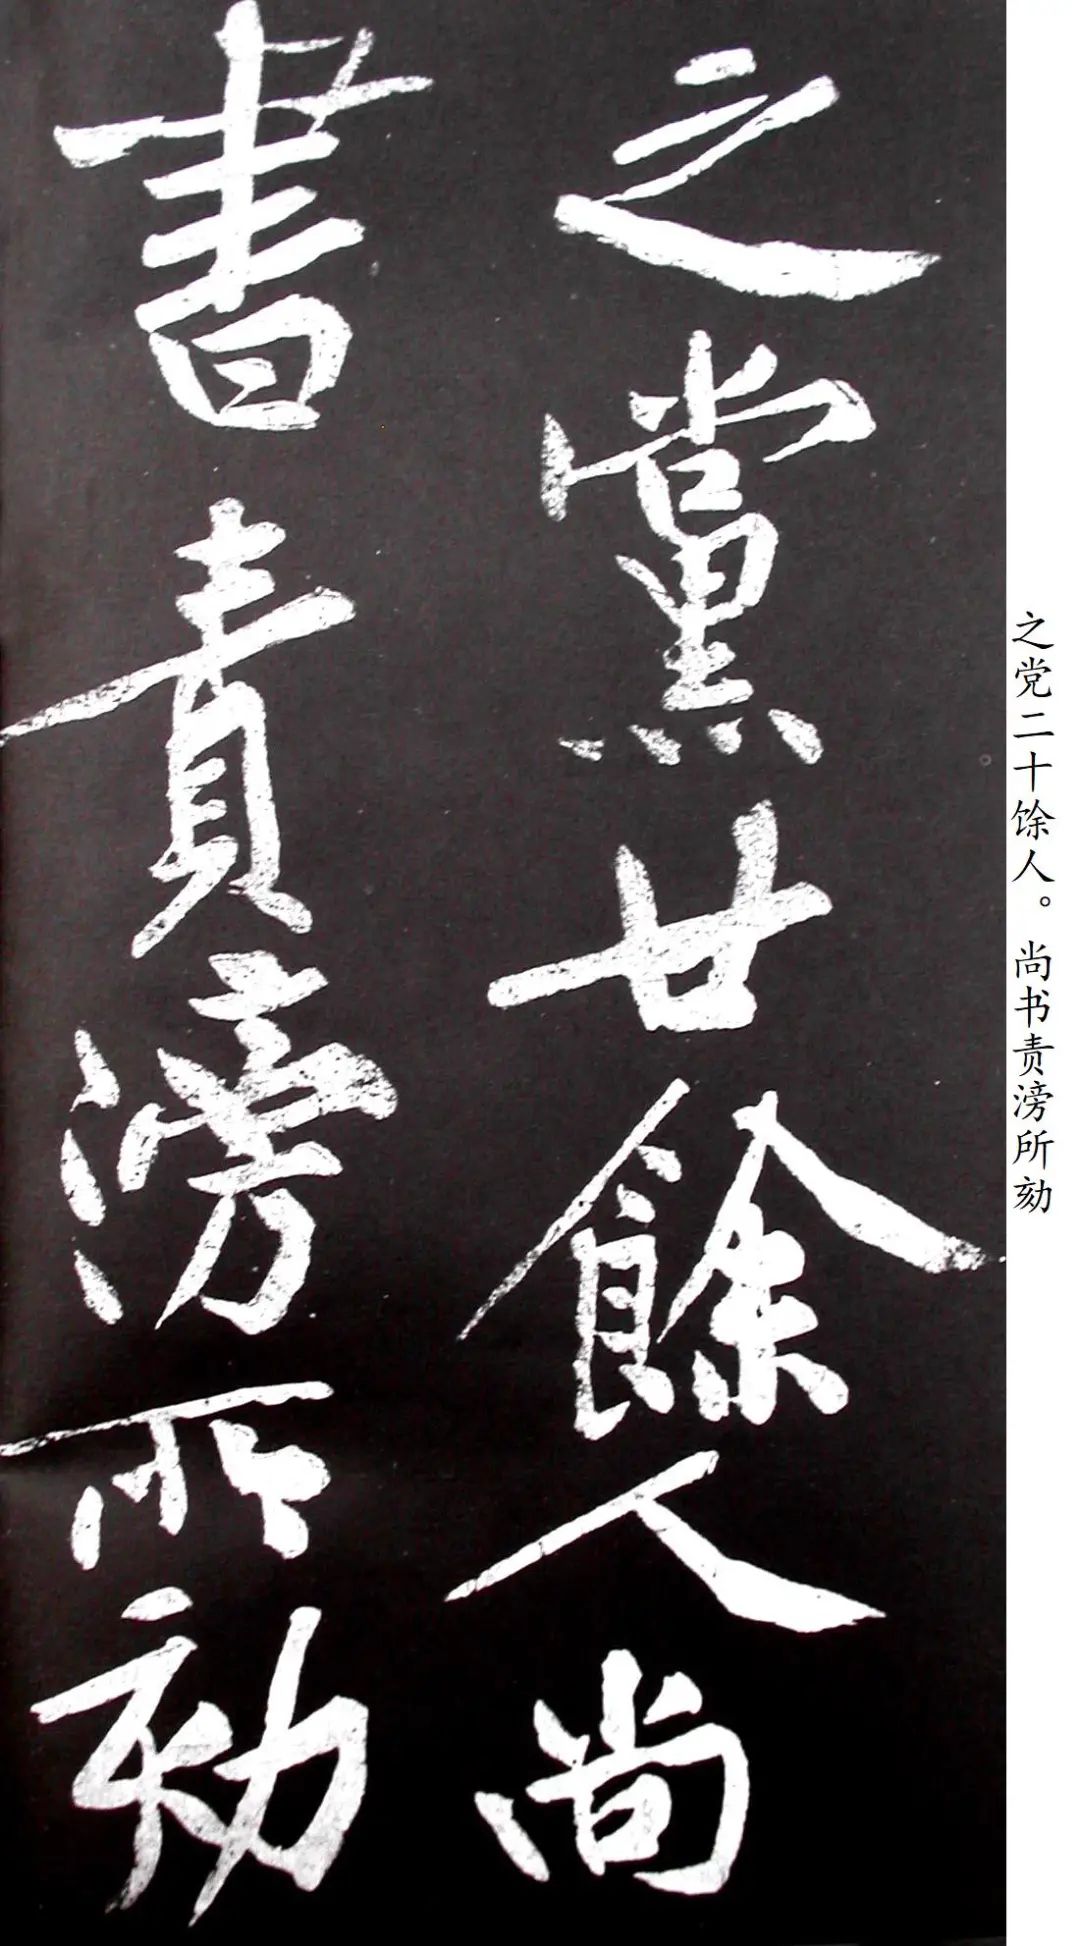 之黨廿餘人尚
書責滂所劾
之党二十馀人。尚书责滂所劾